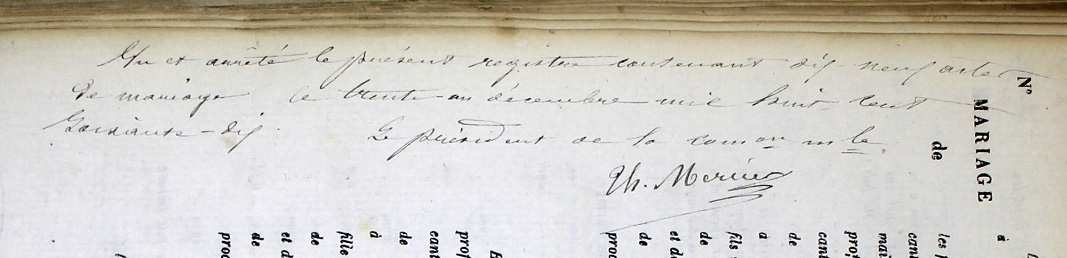 Vu et arrêté le présent registre contenant dix neuf actes
de mariage le trente-un décembre mil huit cent
Soixante-dix. Le président de la comon mle
Th. Mercier
N°
MARIAGE
de
à
les
cant
mai
prof
cant
de
à
fils
de
et de
de
proc
prof
cant
de
à
fille
de
et d
de
proc